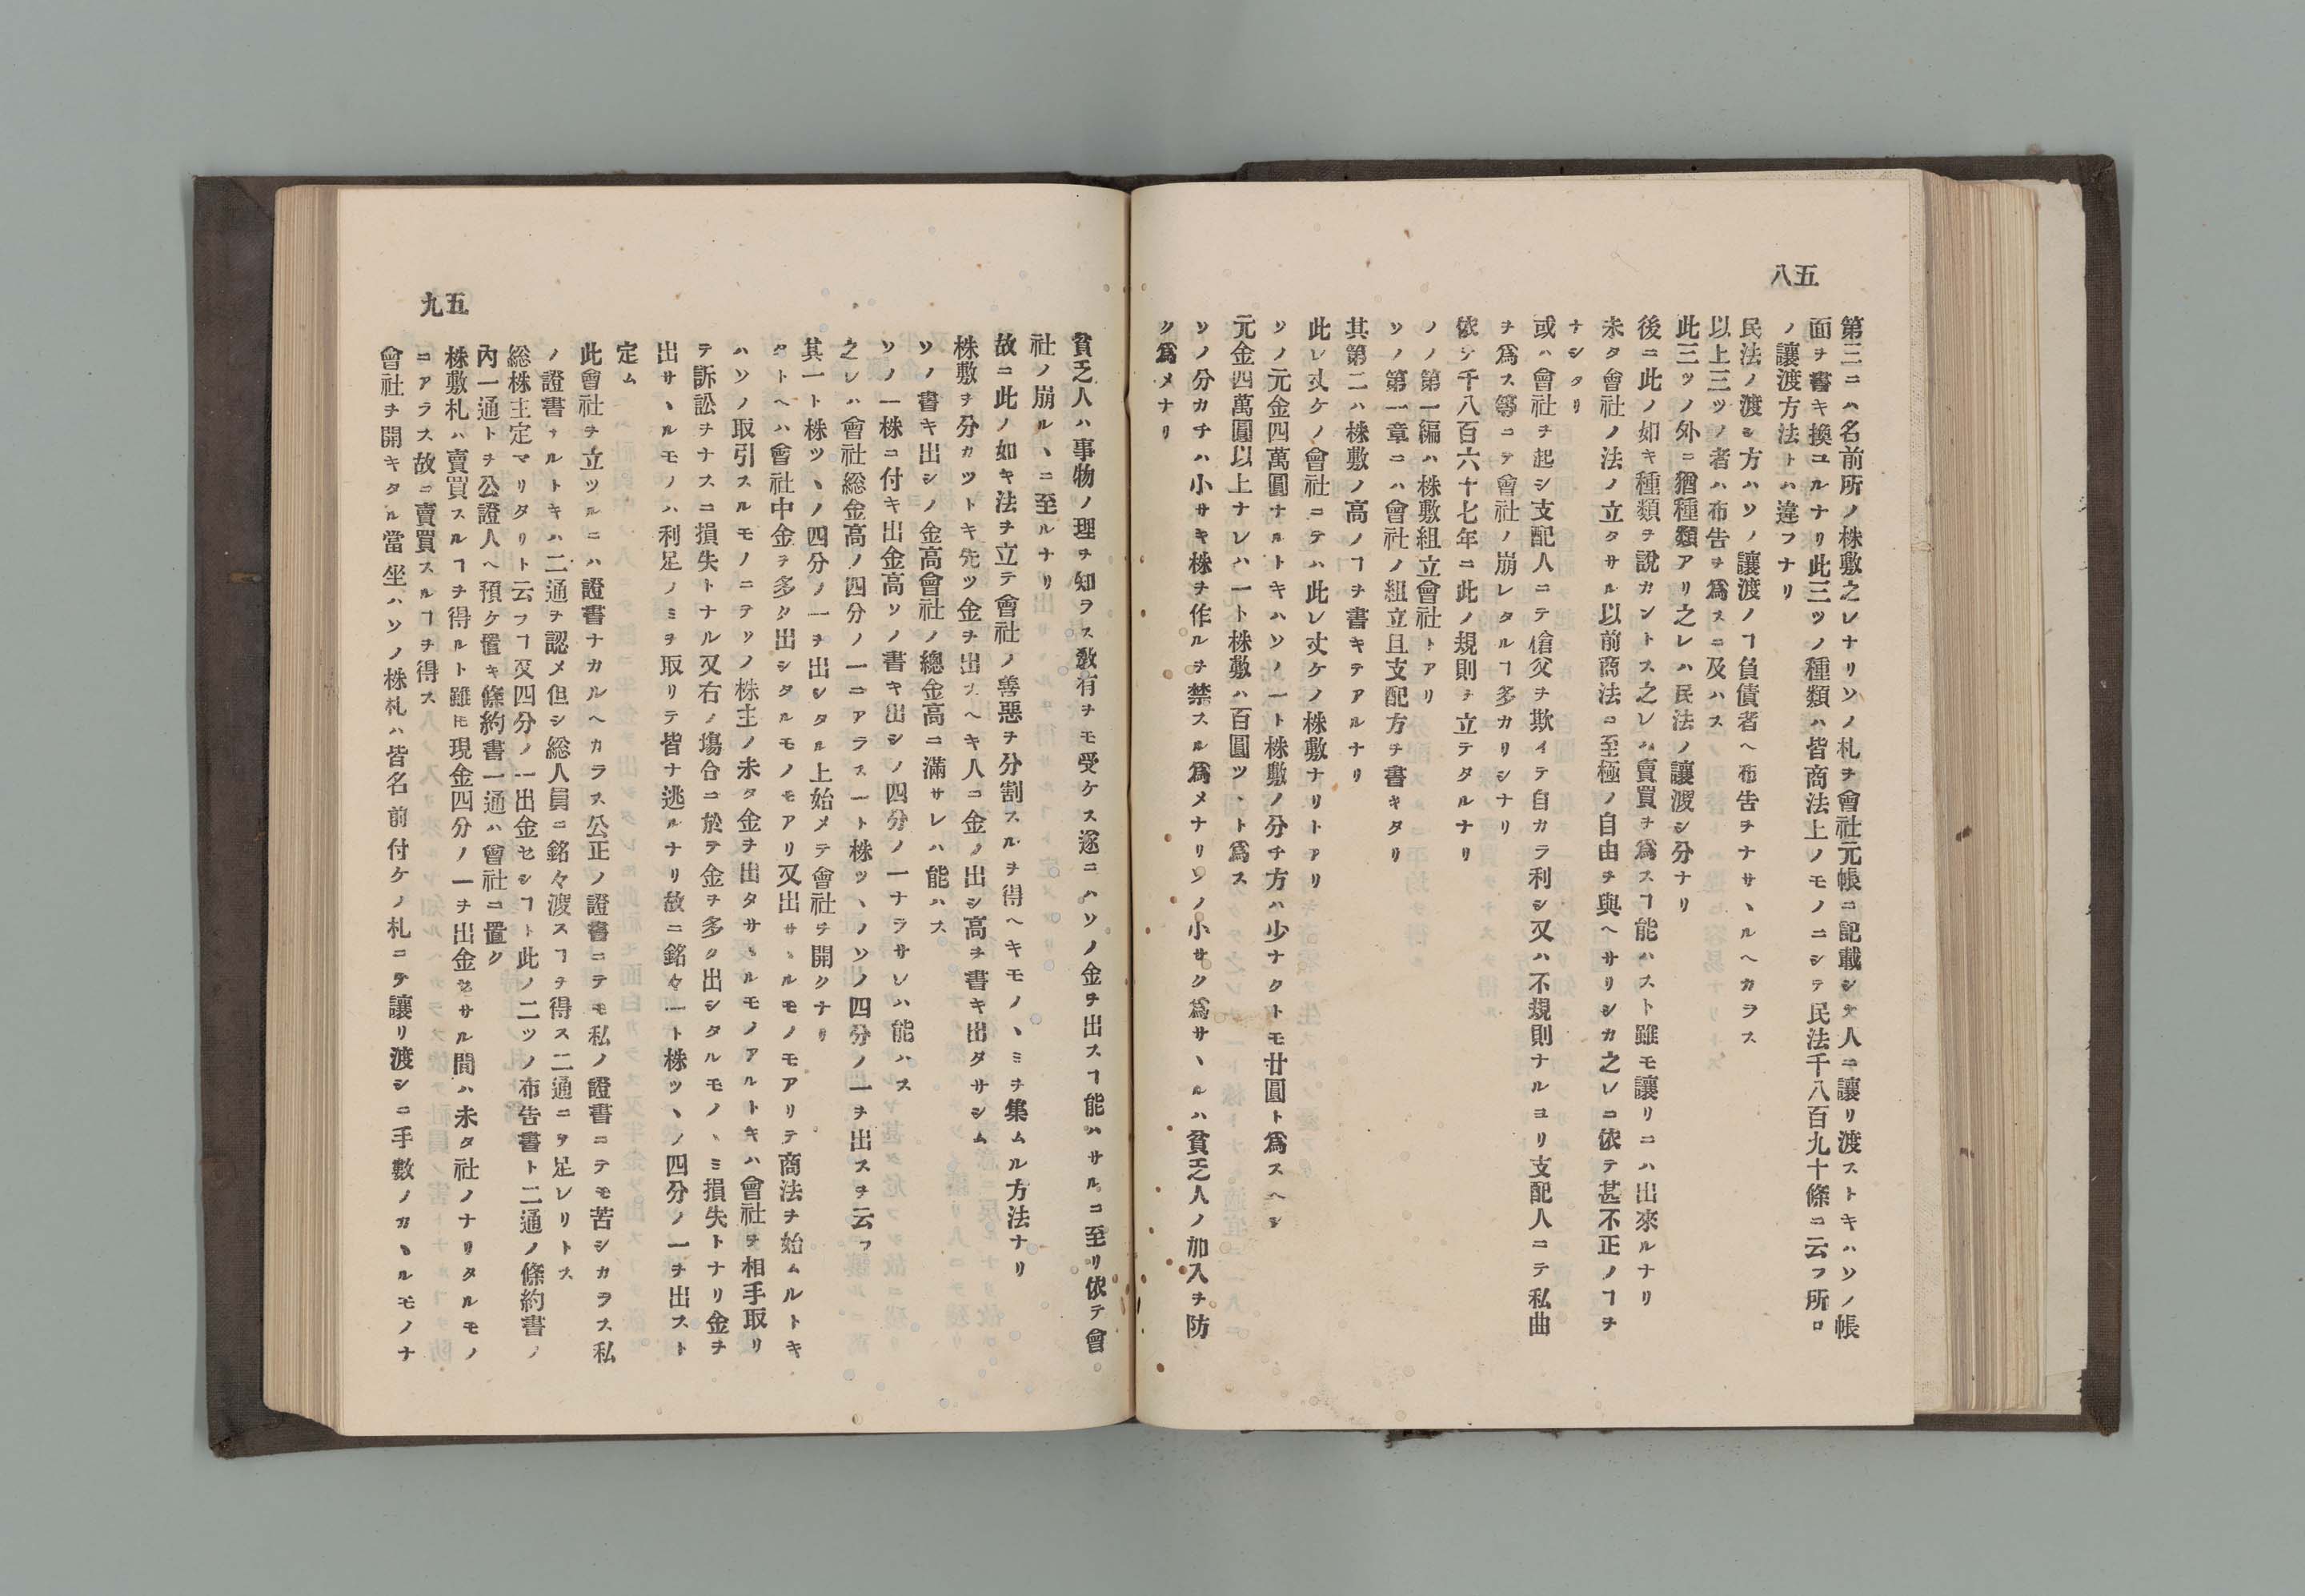 五八
第三ニハ名前所ノ株敷之レナリソノ札ヲ會社元帳ニ記載シテ人ニ讓リ渡ストキハソノ帳
面ヲ書キ換ユルナリ此三ツノ種類ハ皆商法上ノモノニシテ民法千八百九十條ニ云フ所ロ
ノ讓渡方法トハ違フナリ
民法ノ渡シ方ハソノ讓渡ノヿ負債者ヘ布告ヲナサヽルヘカラス
以上三ツノ者ハ布告ヲ爲スニ及ハス
此三ツノ外ニ猶種類アリ之レハ民法ノ讓渡シ分ナリ
後ニ此ノ如キ種類ヲ說カントス之レハ賣買ヲ爲スヿ能ハスト雖モ讓リニハ出來ルナリ
未タ會社ノ法ノ立タサル以前商法ニ至極ノ自由ヲ與ヘサリシカ之レニ依テ甚不正ノヿヲ
ナシタリ
或ハ會社ヲ起シ支配人ニテ傖父ヲ欺イテ自カラ利シ又ハ不規則ナルヨリ支配人ニテ私曲
ヲ爲ス等ニテ會社ノ崩レタルヿ多カリシナリ
依テ千八百六十七年ニ此ノ規則ヲ立テタルナリ
ソノ第一編ハ株敷組立會社トアリ
ソノ第一章ニハ會社ノ組立且支配方ヲ書キタリ
其第二ハ株敷ノ高ノヿヲ書キテアルナリ
此レ丈ケノ會社ニテハ此レ丈ケノ株敷ナリトアリ
ソノ元金四萬圓ナルトキハソノ一ト株敷ノ分チ方ハ少ナクトモ廿圓ト爲スヘシ
元金四萬圓以上ナレハ一ト株敷ハ百圓ツヽト爲ス
ソノ分カチハ小サキ株ヲ作ルヲ禁スル爲メナリソノ小サク爲サヽルハ貧乏人ノ加入ヲ防
ク爲メナリ
五九
貧乏人ハ事物ノ理ヲ知ラス敎育ヲモ受ケス遂ニハソノ金ヲ出スヿ能ハサルニ至リ依テ會
社ノ崩ルヽニ至ルナリ
故ニ此ノ如キ法ヲ立テ會社ノ善惡ヲ分割スルヲ得ヘキモノヽミヲ集ムル方法ナリ
株敷ヲ分カツトキ先ツ金ヲ出スヘキ人ニ金ノ出シ高ヲ書キ出タサシム
ソノ書キ出シノ金高會社ノ總金高ニ滿サレハ能ハス
ソノ一株ニ付キ出金高ソノ書キ出シノ四分ノ一ナラサレハ能ハス
之レハ會社総金高ノ四分ノ一ニアラス一ト株ツヽノソノ四分ノ一ヲ出スヲ云フ
其一ト株ツヽノ四分ノ一ヲ出シタル上始メテ會社ヲ開クナリ
タトヘハ會社中金ヲ多ク出シタルモノモアリ又出サヽルモノモアリテ商法ヲ始ムルトキ
ハソノ取引スルモノニテソノ株主ノ未タ金ヲ出タサヽルモノアルトキハ會社ヲ相手取リ
テ訴訟ヲナスニ損失トナル又右ノ塲合ニ於テ金ヲ多ク出シタルモノヽミ損失トナリ金ヲ
出サヽルモノハ利足ノミヲ取リテ皆ナ逃ルナリ故ニ銘々一ト株ツヽノ四分ノ一ヲ出スト
定ム
此會社ヲ立ツルニハ證書ナカルヘカラス公正ノ證書ニテモ私ノ證書ニテモ苦シカラス私
ノ證書ナルトキハ二通ヲ認メ但シ総人員ニ銘々渡スヿヲ得ス二通ニテ足レリトス
総株主定マリタリト云フヿ及四分ノ一出金セシヿト此ノ二ツノ布告書ト二通ノ條約書ノ
內一通トヲ公證人ヘ預ケ置キ條約書一通ハ會社ニ置ク
株敷札ハ賣買スルヿヲ得ルト雖𪜈現金四分ノ一ヲ出金セサル間ハ未タ社ノナリタルモノ
ニアラス故ニ賣買スルヿヲ得ス
會社ヲ開キタル當坐ハソノ株札ハ皆名前付ケノ札ニテ讓リ渡シニ手數ノカヽルモノナ